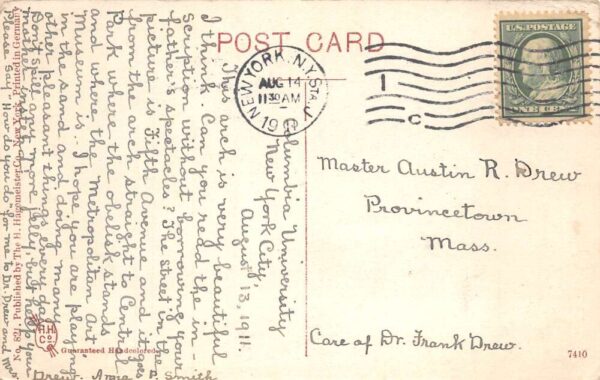 POST CARD
NEW YORK, N.Y. STA. J
AUG 14
11 30 AM
1911
1
C
U.S. POSTAGE
Master Austin R. Drew
Provincetown
Mass.
Care of Dr. Frank Drew.
7410
Columbia University
New York City,
August 13, 1911.
This arch is very beautiful
I think. Can you read the in-
scription without borrowing your
father's spectacles? The street in the
picture is Fifth Avenue and it goes
from the arch straight to Central
Park where the obelisk stands
and where the Metropolitan Art
Museum is. I hope you are playing
in the sand and doing many
other pleasant things every day.
Don't spill any more jelly, but hold your
Please say "How do you do" for me to Dr. Drew and Mrs.
Drew. Anna E. Smith
No. 82, Published by The H. Hagemeister Co., New York, Printed in Germany
Guaranteed Handcolored